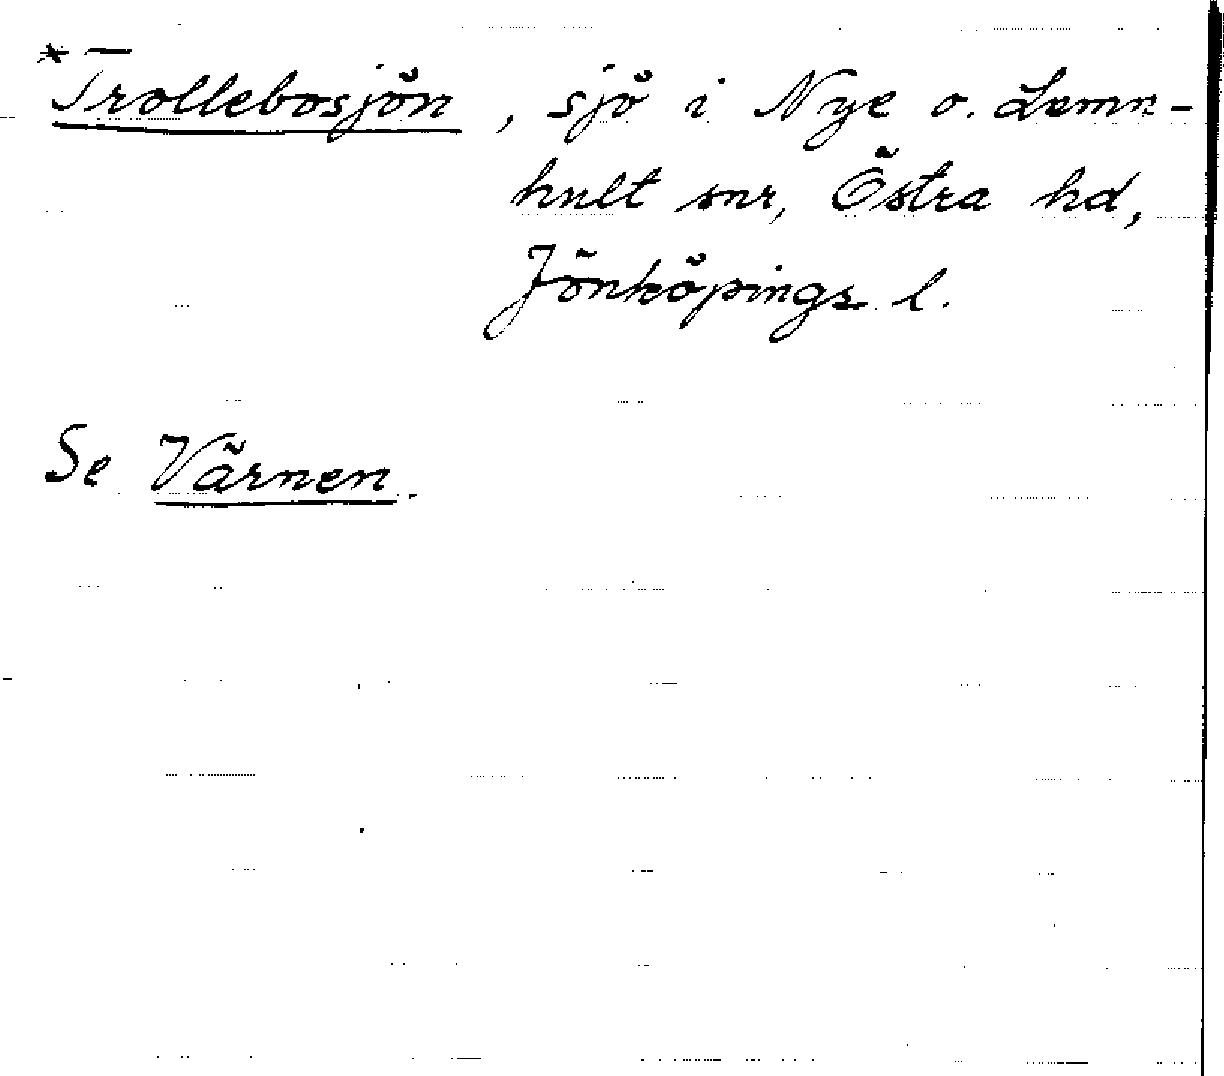 *Trollebosjön, sjö i Nye o. Lemn-
hult snr, Östra hd,
Jönköpings l.
Se Värnen.